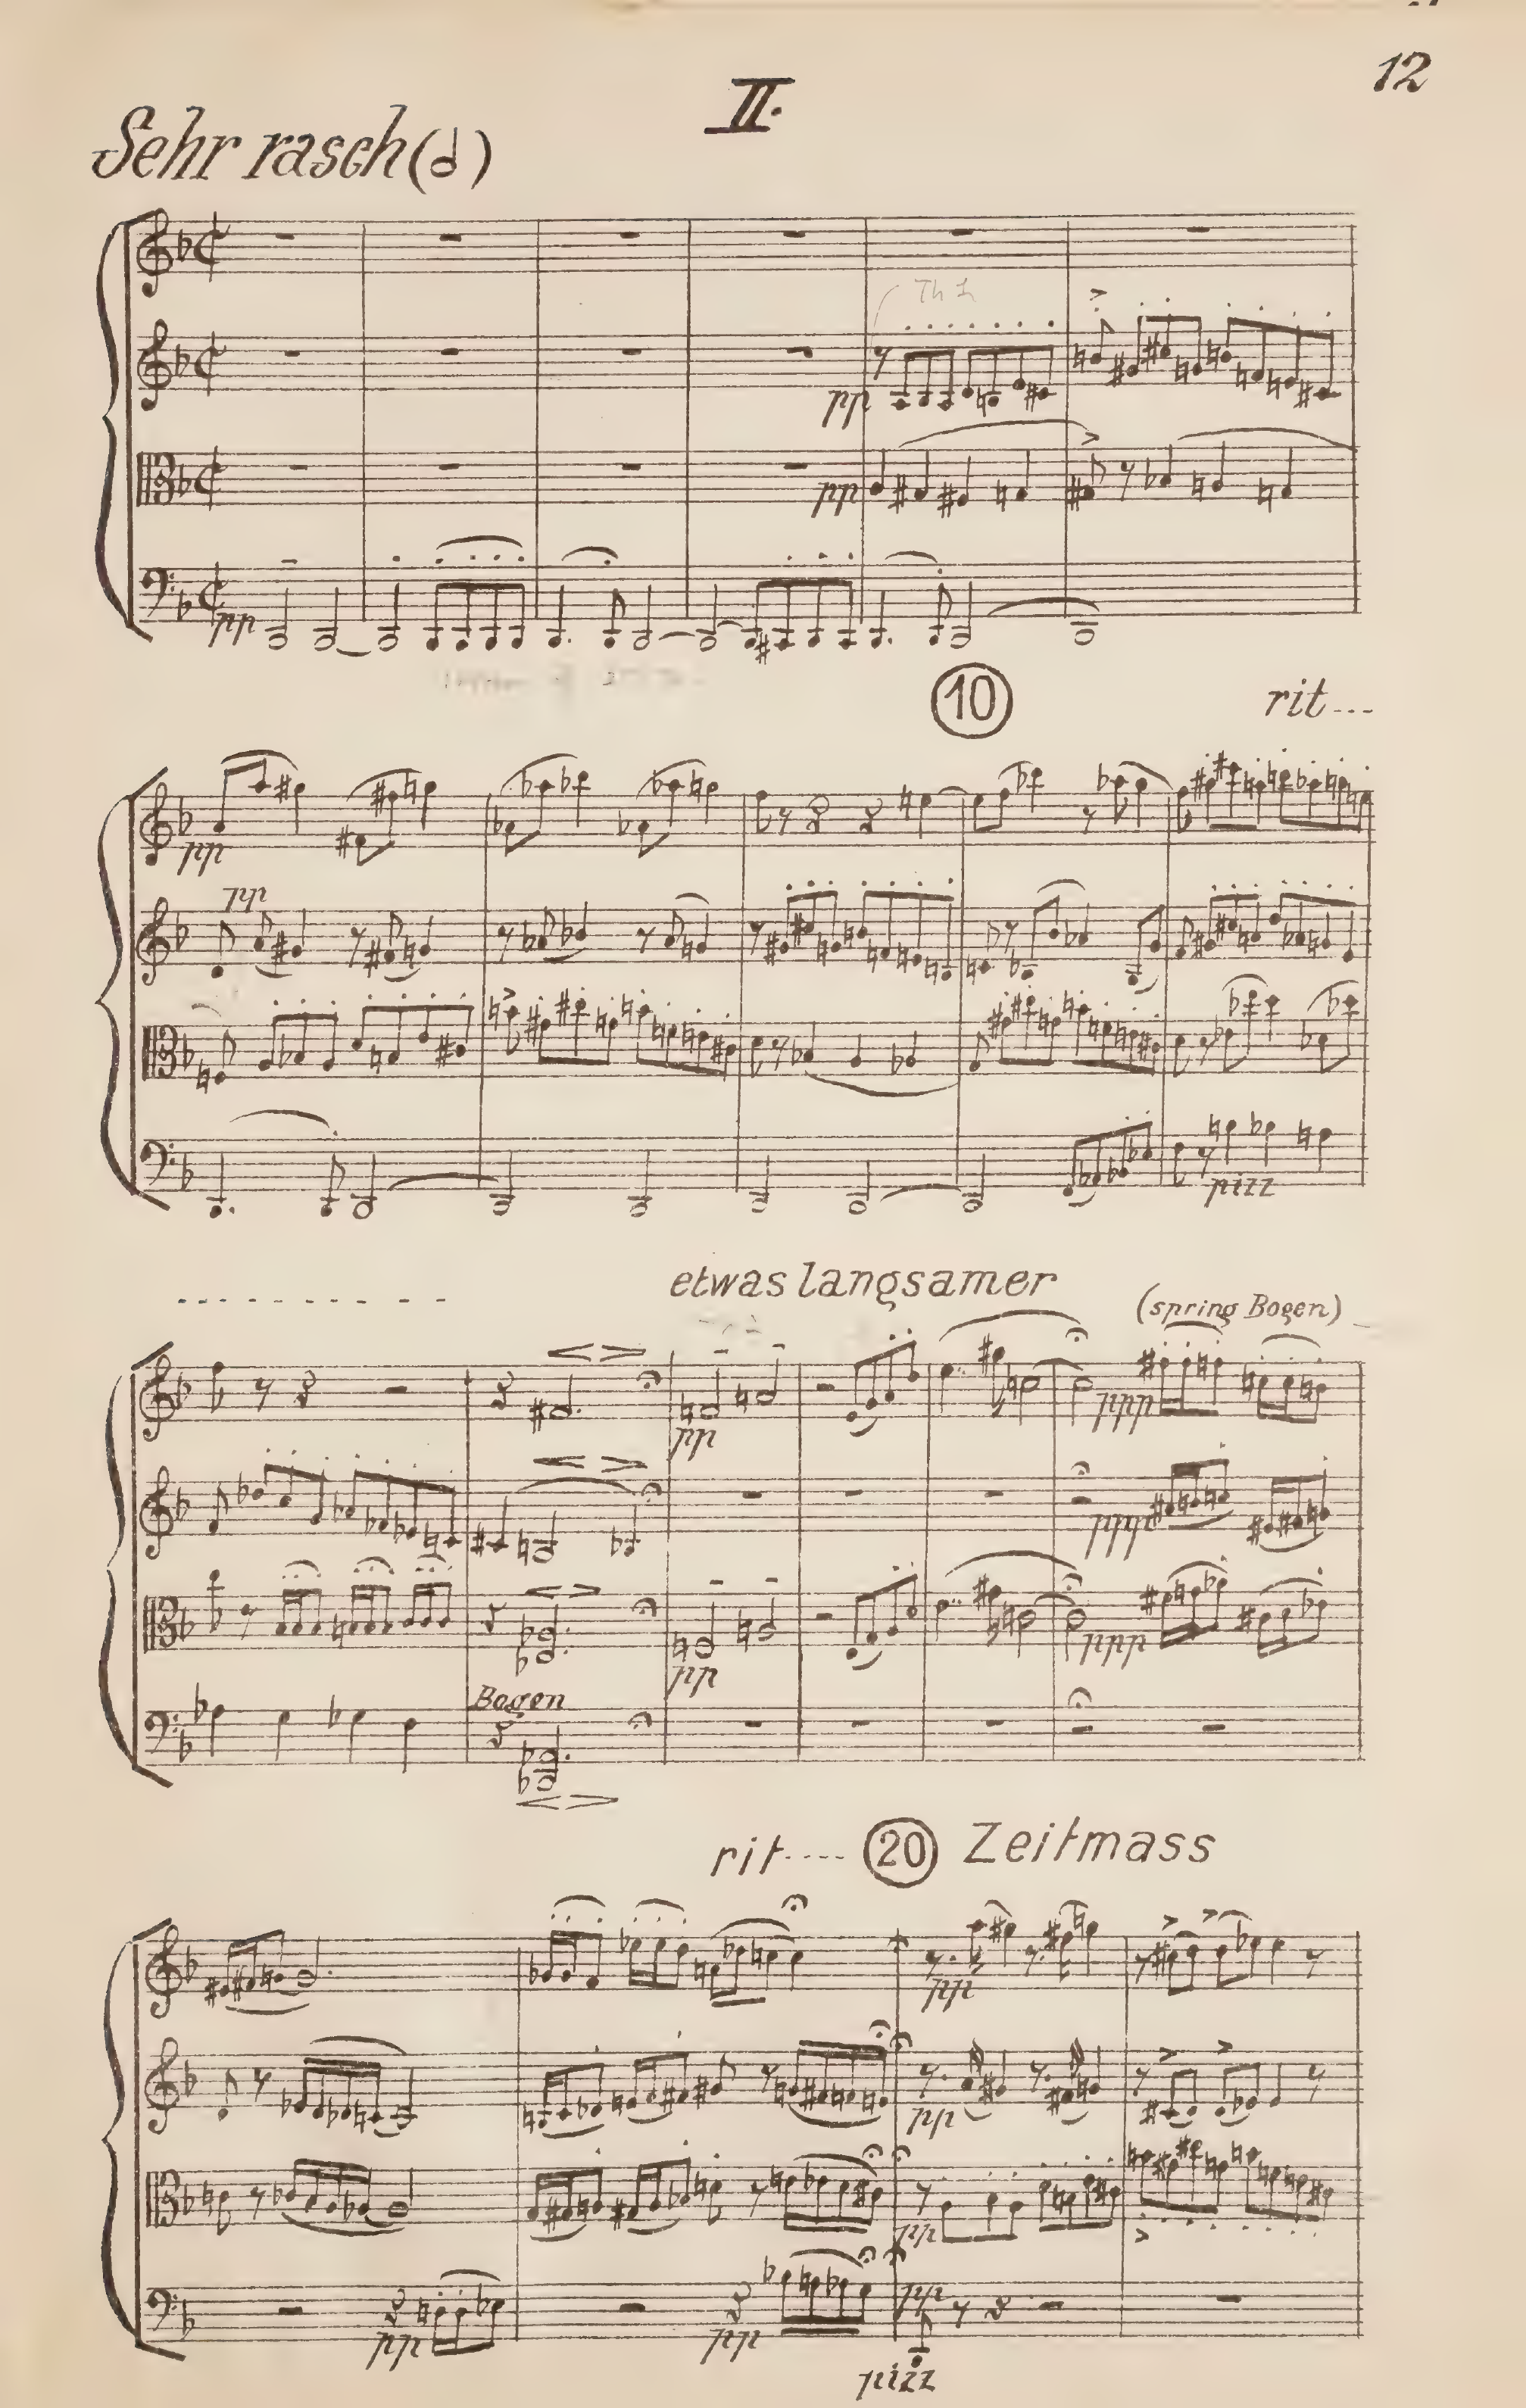 12
II.
Sehr rasch (𝅗𝅥)
Th I
pp
pp
pp
10
rit---
pp
pp
pizz
etwas langsamer
(spring Bogen)
ppp
pp
ppp
ppp
pp
Bogen
rit---- 20 Zeitmass
pp
pp
pp
pp
pp pp
pizz